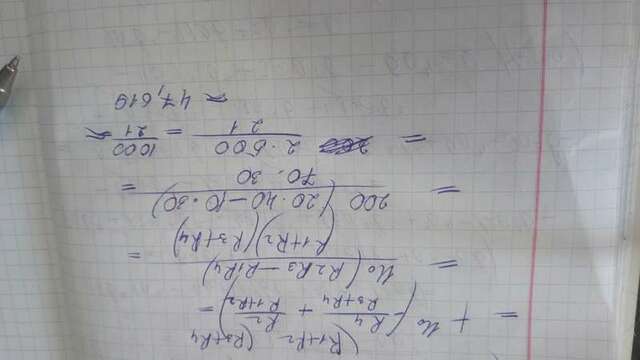 (R1+R2)(R3+R4
= + U₀ (- R4/(R3+R4) + R2/(R1+R2)) =
= U₀(R2R3 - R1R4)/((R1+R2)(R3+R4)) =
= 200 (20·40 - 10·30)/(70·30) =
= 2·500/21 = 1000/21 ≈
≈ 47,619